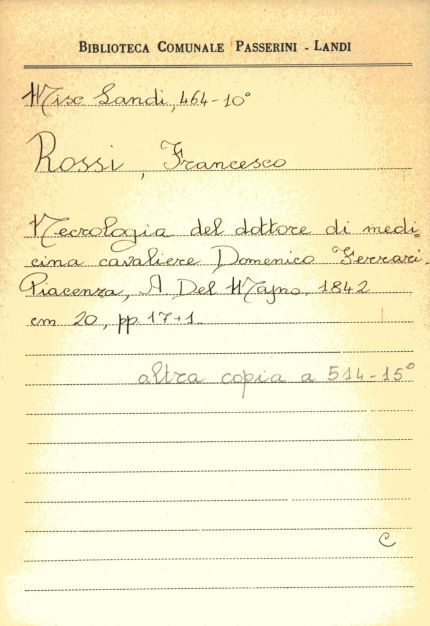 BIBLIOTECA COMUNALE PASSERINI - LANDI
Misc Landi, 464-10°
Rossi, Francesco
Necrologia del dottore di medi=
cina cavaliere Domenico Ferrari.
Piacenza, A. Del Majno, 1842
cm 20, pp 17+1
altra copia a 514-15°
C